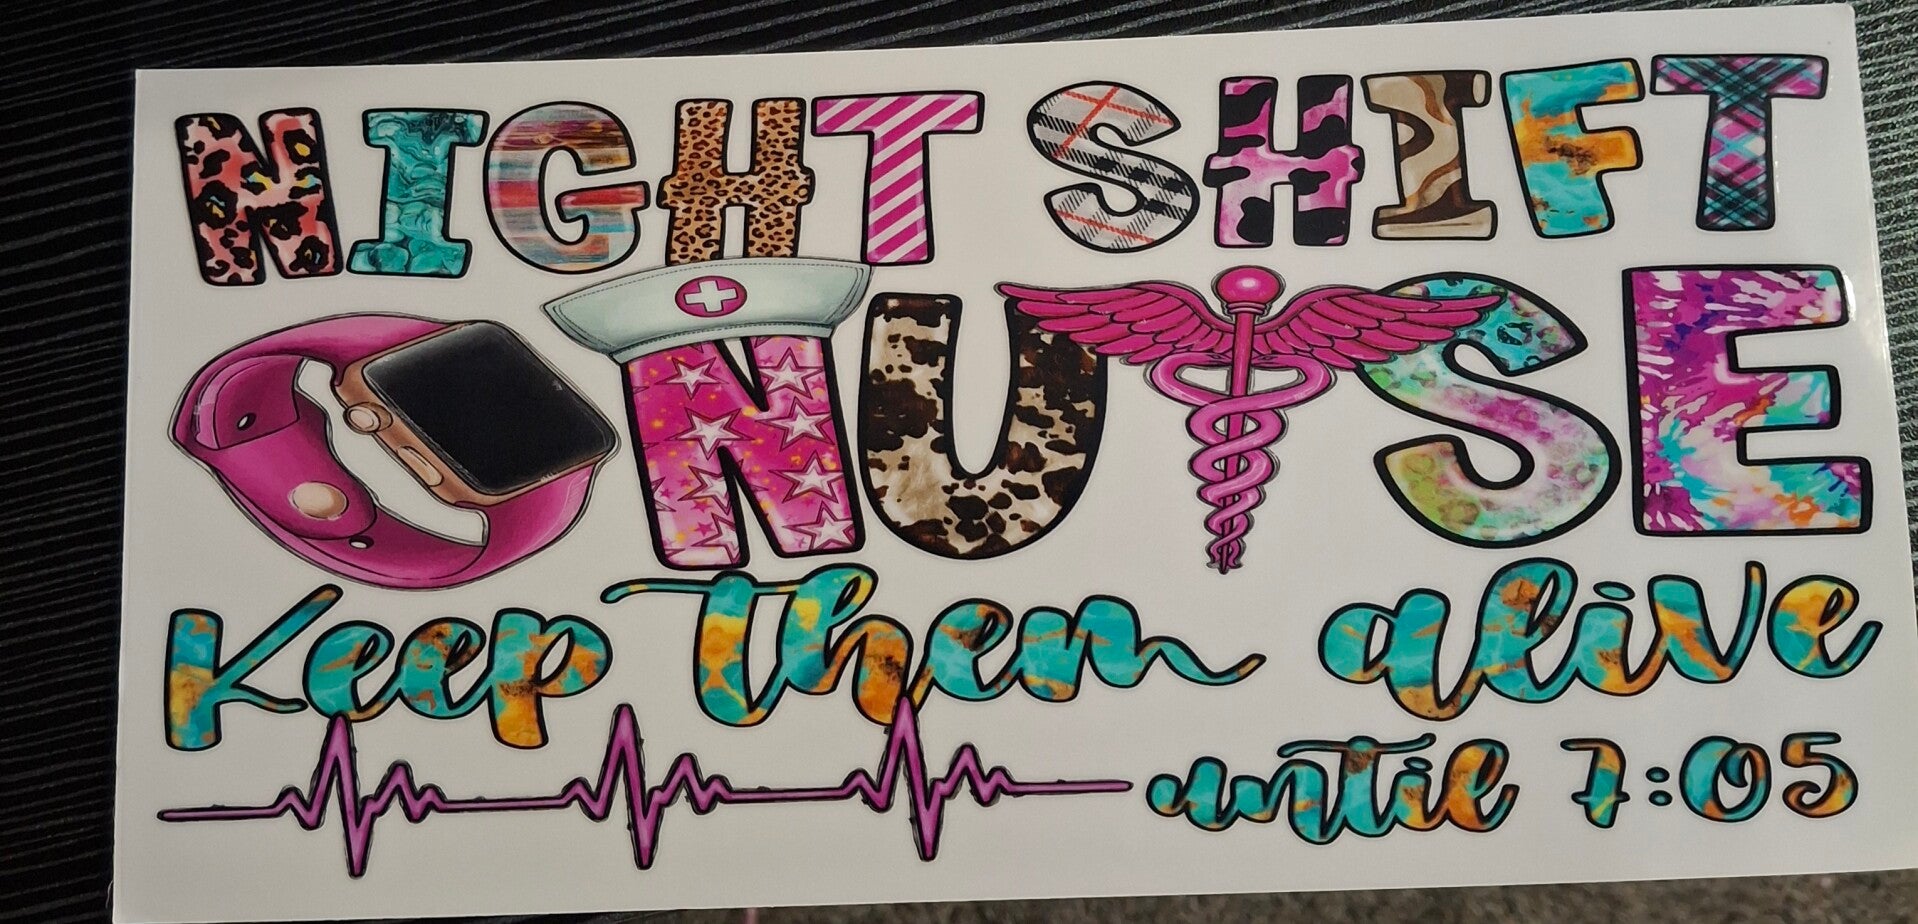 NIGHT SHIFT
NURSE
Keep them alive
until 7:05